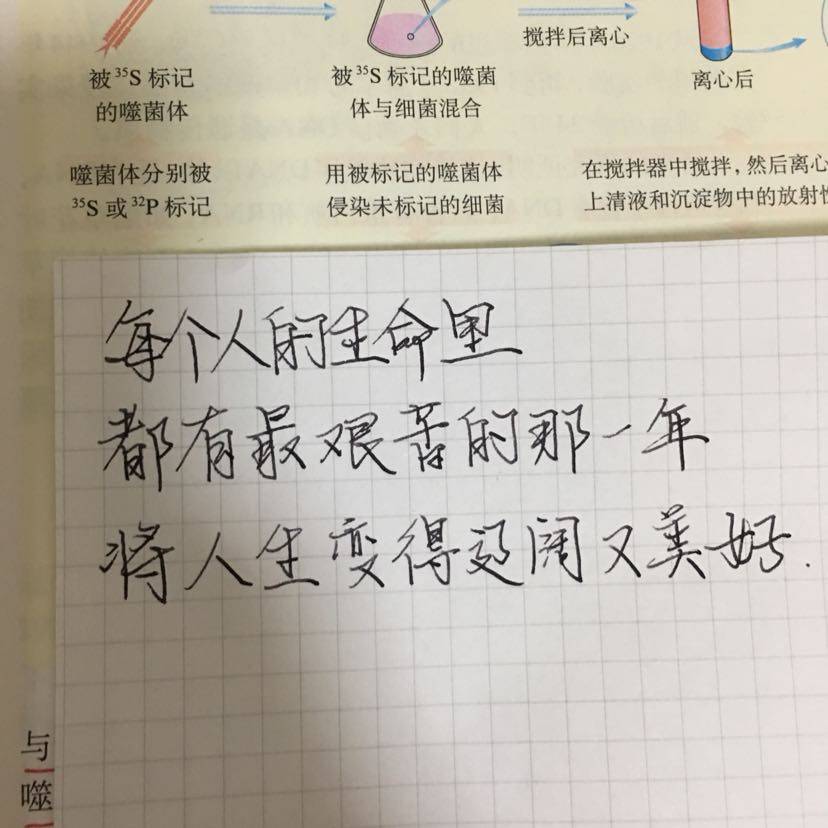 搅拌后离心
被³⁵S 标记的噬菌体
被³⁵S 标记的噬菌体与细菌混合
离心后
噬菌体分别被³⁵S 或³²P 标记
用被标记的噬菌体侵染未标记的细菌
在搅拌器中搅拌，然后离心
上清液和沉淀物中的放射性
每个人的生命里
都有最艰苦的那一年
将人生变得辽阔又美好.
与
噬